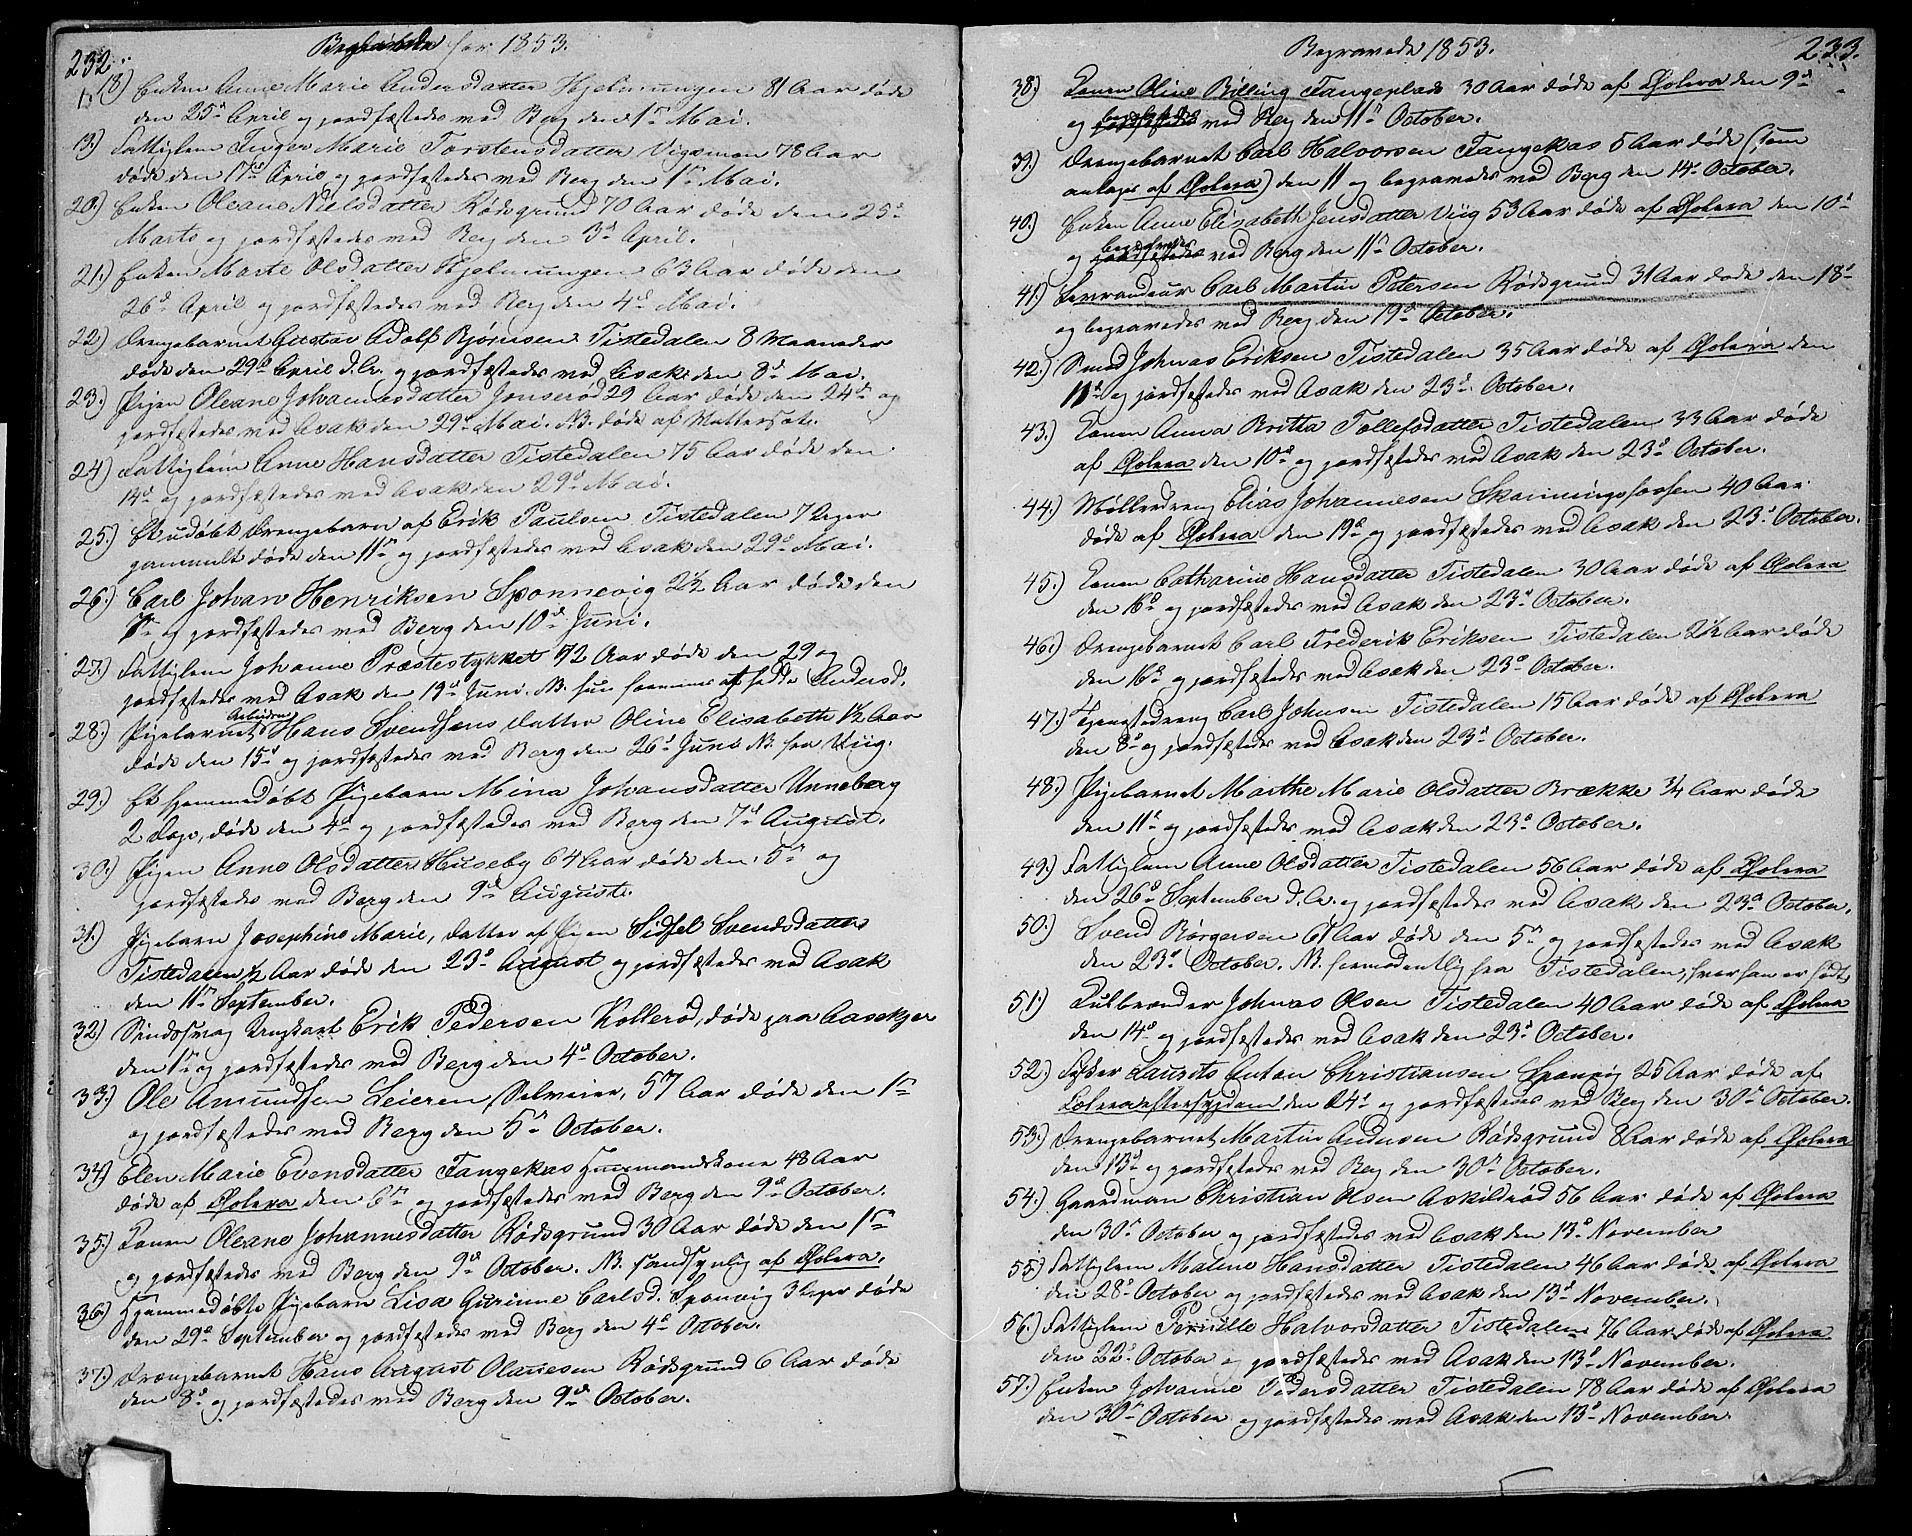 232.
Begravede for 1853.
18) Enken Anne Marie Andersdatter Hjelmungen 81 Aar døde
den 25d April og jordfæstedes ved Berg den 1n Mai.
19.) Fattiglem Inger Marie Torstensdatter Vigsmon 78 Aar
døde den 17d April og jordfæstedes ved Berg den 1n Mai.
20.) Enken Oleane Nielsdatter Rødsgrund 70 Aar døde den 25d
Marts og jordfæstedes ved Berg den 3d April.
21.) Enken Marte Olsdatter Hjelmungen 63 Aar døde den
26d April og jordfæstedes ved Berg den 4d Mai.
22.) Drengebarnet Gustav Adolf Bjørnsen Tistedalen 8 Maaneder
døde den 29d April d.A. og jordfæstedes ved Asak den 8d Mai.
23.) Pigen Oleane Johannesdatter Jonserød 29 Aar døde den 24d og
jordfæstedes ved Asak den 29d Mai. NB. døde af
24.) Fattiglem Anne Hansdatter Tistedalen 75 Aar døde den
14d og jordfæstedes ved Asak den 29d Mai.
25.) Et udøbt Drengebarn af Erik Paulsen Tistedalen 7 Uger
gammelt døde den 11n og jordfæstedes ved Asak den 29d Mai.
26.) Carl Johan Henriksen Sponnevig 2½ Aar døde den
7n og jordfæstedes ved Berg den 10d Juni.
27.) Fattiglem Johanne Præstestykket 72 Aar døde den 29 og
jordfæstedes ved Asak den 19d Juni. NB. hun at hedde Andersd.
28.) Pigebarnet Arbeider Hans Svendsens Datter Oline Elisabeth 1½ Aar
døde den 15d og jordfæstedes ved Berg den 26d Juni NB. fra Viig.
29.) Et hjemmedøbt Pigebarn Mina Johansdatter Unneberg
2 Dage, døde den 4d og jordfæstedes ved Berg den 7d August.
30.) Pigen Anne Olsdatter Huseby 64 Aar døde den 5n og
jordfæstedes ved Berg den 9d August.
31.) Pigebarn Josephine Marie, Datter af Pigen Sidsel Svendsdatter
Tistedalen ½ Aar døde den 23d August og jordfæstedes ved Asak
den 11n September.
32.) Sindssvag Ungkarl Erik Pedersen Kollerød, døde paa Aasekjer
den 1n og jordfæstedes ved Berg den 4d October.
33.) Ole Amundsen Leieren Selveier, 57 Aar døde den 1n
og jordfæstedes ved Berg den 5n October.
34.) Elen Marie Evensdatter Tangekas Huusmandskone 48 Aar
døde af Cholera den 6n og jordfæstedes ved Berg den 9d October.
35.) Konen Oleane Johannesdatter Rødsgrund 30 Aar døde den 1n
og jordfæstedes ved Berg den 9d October. NB. sandsynlig af Cholera.
36.) Hjemmedøbte Pigebarn Lisa Gurinne Carlsd. Sponvig 3 Uger døde
den 29d September og jordfæstedes ved Berg den 4d October.
37.) Drengebarnet Hans August Olausen Rødsgrund 6 Aar døde
den 8d og jordfæstedes ved Berg den 9d October.
Begravede 1853.
233.
38.) Konen Oline Billing Tangeplads 30 Aar døde af Cholera den 9d
og begravedes ved Berg den 11n October.
39.) Drengebarnet Carl Halvorsen Tangekas 5 Aar døde (som
antages af Cholera) den 11 og begravedes ved Berg den 14d October.
40.) Enken Anne Elisabeth Jensdatter Viig 53 Aar døde af Cholera den 10d
og begravedes ved Berg den 11n October.
41.) Leverandeur Carl Martin Petersen Rødsgrund 31 Aar døde den 18d
og begravedes ved Berg den 19d October.
42.) Smed Johnas Eriksen Tistedalen 35 Aar døde af Cholera den
11d og jordfæstedes ved Asak den 23d October.
43.) Konen Anna Britta Tollefsdatter Tistedalen 33 Aar døde
af Cholera den 10d og jordfæstedes ved Asak den 23d October.
44.) Møllerdreng Elias Johannesen Skonningsfossen 40 Aar
døde af Cholera den 19d og jordfæstedes ved Asak den 23d October.
45.) Konen Catharine Hansdatter Tistedalen 30 Aar døde af Cholera
den 16d og jordfæstedes ved Asak den 23d October.
46.) Drengebarnet Carl Frederik Eriksen Tistedalen 2½ Aar døde
den 16d og jordfæstedes ved Asak den 23d October.
47.) Tjenestedreng Carl Johnsen Tistedalen 15 Aar døde af Cholera
den 8d og jordfæstedes ved Asak den 23d October.
48.) Pigebarnet Marthe Marie Olsdatter Brække ¾ Aar døde
den 11d og jordfæstedes ved Asak den 23d October.
49.) Fattiglem Anne Olsdatter Tistedalen 56 Aar døde af Cholera
den 26d September d.A. og jordfæstedes ved Asak den 23d October.
50.) Svend Børgersen 61 Aar døde den 5n og jordfæstedes ved Asak
den 23d October. NB. formodentlig fra Tistedalen, hvor han er født.
51.) Kulbrænder Johnas Olsen Tistedalen 40 Aar døde af Cholera
den 14d og jordfæstedes ved Asak den 23d October.
52.) Fisker Laurits Anton Christiansen Sponvig 25 Aar døde af
Coleraeftersygdom den 24d og jordfæstedes ved Berg den 30n October.
53.) Drengebarnet Martin Andersen Rødsgrund 8 Aar døde af Cholera
den 13d og jordfæstedes ved Berg den 30n October.
54.) Gaardman Christian Olsen Askildrød 56 Aar døde af Cholera
den 30n October og jordfæstedes ved Asak den 13d November
55.) Fattiglem Malene Hansdatter Tistedalen 46 Aar døde af Cholera
den 28d October og jordfæstedes ved Asak den 13d November.
56.) Fattiglem Pernille Halvorsdatter Tistedalen 76 Aar døde af Cholera
den 22d October og jordfæstedes ved Asak den 13d November.
57.) Enken Johanne Pedersdatter Tistedalen 78 Aar døde af Cholera
den 30n October og jordfæstedes ved Asak den 13d November.